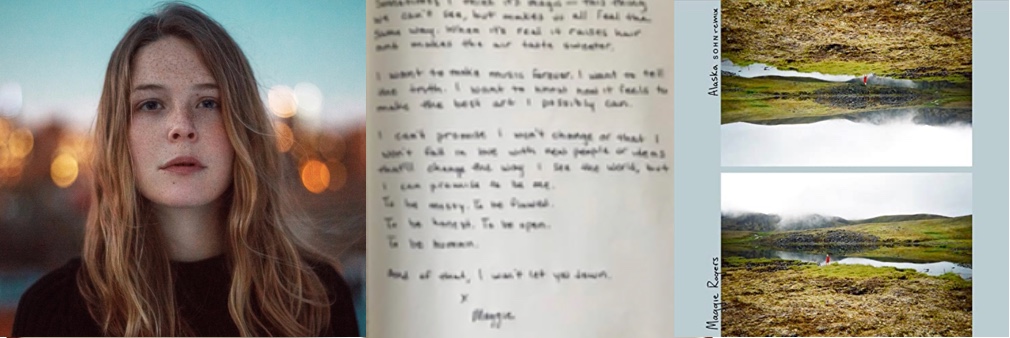 sometimes I think it's magic — this thing
we can't see, but makes us all feel the
same way. When it's real it raises hair
and makes the air taste sweeter.
I want to make music forever. I want to tell
the truth. I want to know how it feels to
make the best art I possibly can.
I can't promise I won't change or that I
won't fall in love with new people or ideas
that'll change the way I see the world, but
I can promise to be me.
To be messy. To be flawed.
To be honest. To be open.
To be human.
And of that, I won't let you down.
x
Maggie
Alaska SOHN remix
Maggie Rogers